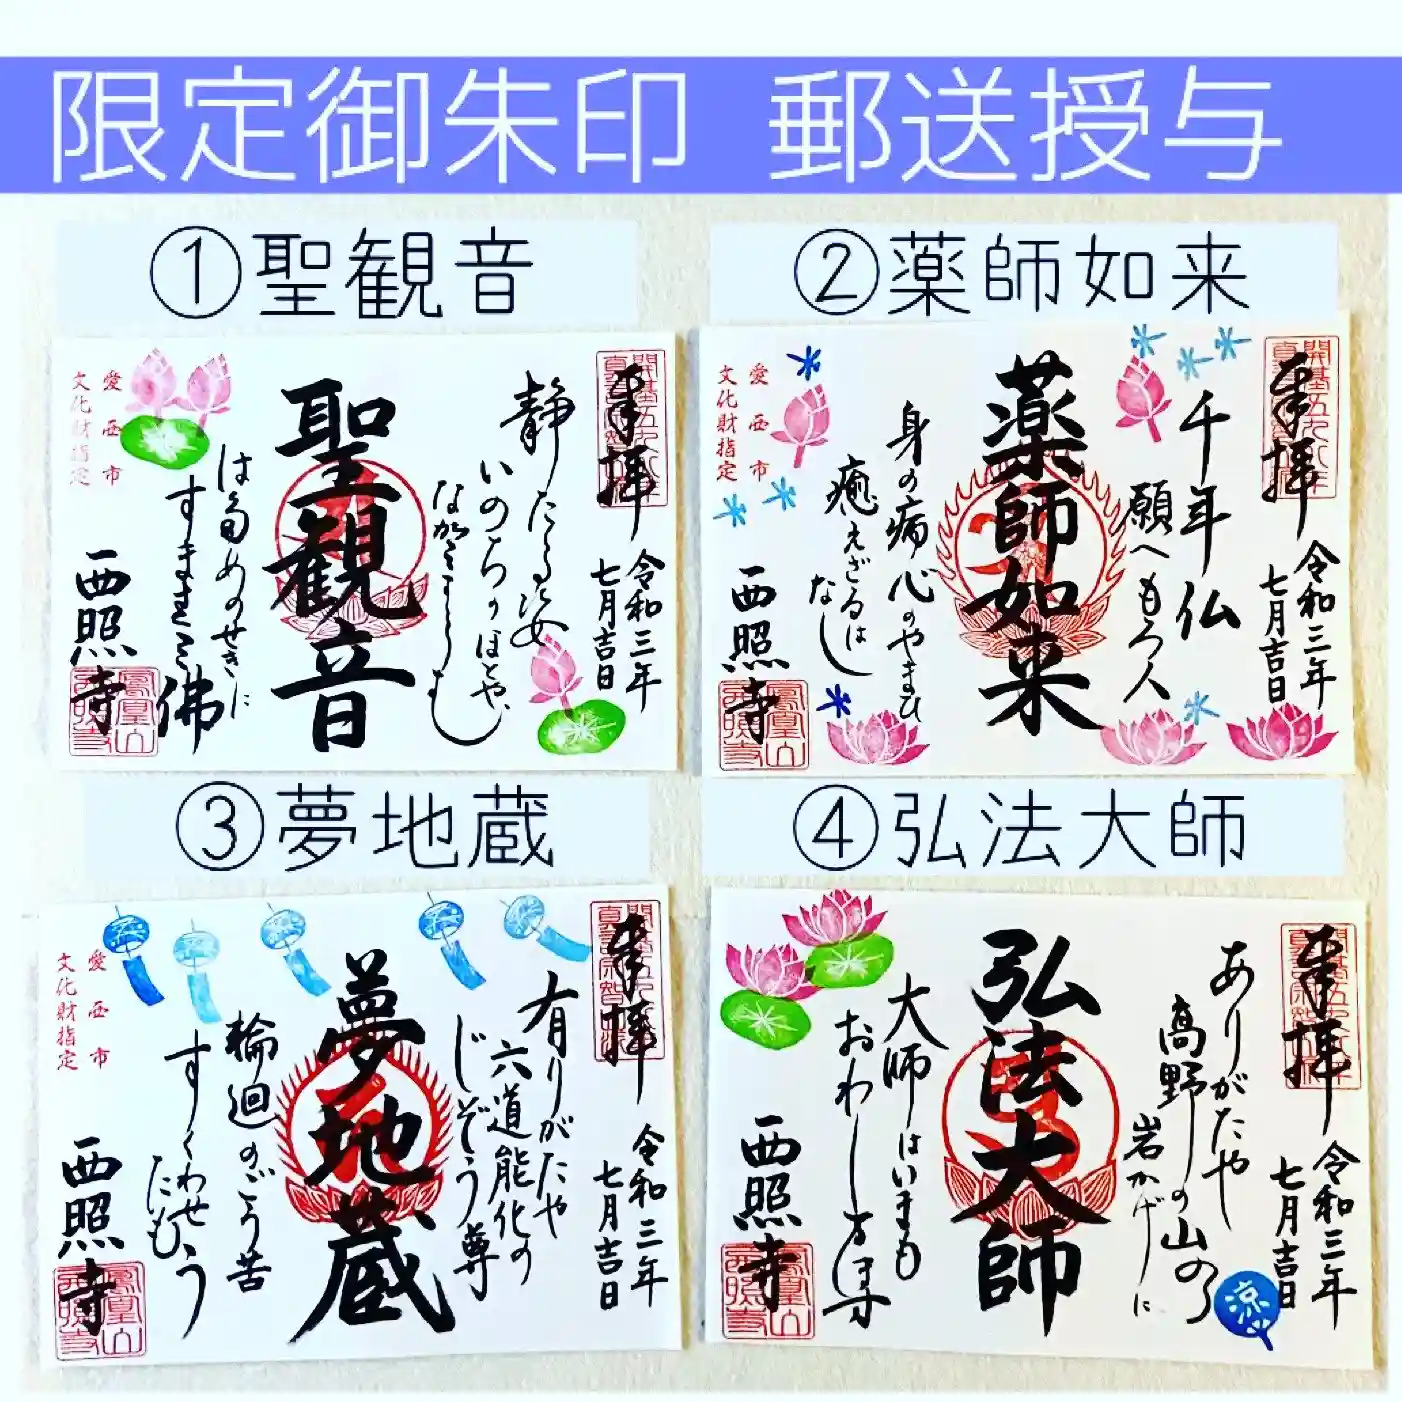 限定御朱印 郵送授与
①聖観音
奉拝
令和三年
七月吉日
静たる姿
いのちのほとや
聖観音
佛
愛西市
文化財指定
西照寺
②薬師如来
奉拝
令和三年
七月吉日
千年仏
願へもろ人
薬師如来
身の病心のやまひ
癒えざるは
なし
愛西市
文化財指定
西照寺
③夢地蔵
奉拝
令和三年
七月吉日
有りがたや
六道能化の
じぞう尊
夢地蔵
輪廻のごう苦
すくわせ
愛西市
文化財指定
西照寺
④弘法大師
奉拝
令和三年
七月吉日
ありがたや
高野の山の
岩かげに
涼
弘法大師
大師はいまも
おわします
西照寺